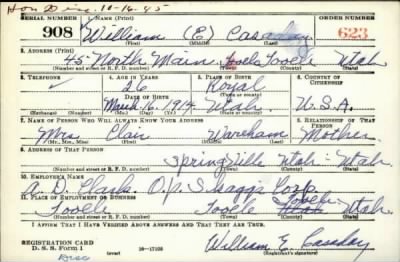 Hon Disc. 10-16-45
SERIAL NUMBER 1. NAME (Print) ORDER NUMBER
908 William (E) Casaday 623
(First) (Middle) (Last)
2. ADDRESS (Print)
45 North Main Tooele Tooele Utah
(Number and street or R. F. D. number) (Town) (County) (State)
3. TELEPHONE 4. AGE IN YEARS 5. PLACE OF BIRTH 6. COUNTRY OF CITIZENSHIP
26 Royal
DATE OF BIRTH (Town or county)
March 16, 1914 Utah U.S.A.
(Exchange) (Number) (Mo.) (Day) (Yr.) (State or country)
7. NAME OF PERSON WHO WILL ALWAYS KNOW YOUR ADDRESS 8. RELATIONSHIP OF THAT PERSON
Mrs Clair Wareham Mother
(Mr., Mrs., Miss) (First) (Middle) (Last)
9. ADDRESS OF THAT PERSON
Springville Utah - Utah
(Number and street or R. F. D. number) (Town) (County) (State)
10. EMPLOYER'S NAME
O. P. Skaggs Corp.
11. PLACE OF EMPLOYMENT OR BUSINESS
Tooele Tooele Tooele Utah
(Number and street or R. F. D. number) (Town) (County) (State)
I AFFIRM THAT I HAVE VERIFIED ABOVE ANSWERS AND THAT THEY ARE TRUE.
REGISTRATION CARD
D. S. S. Form 1 16-17105 William E. Casaday
(over) (Registrant's signature)
Disc